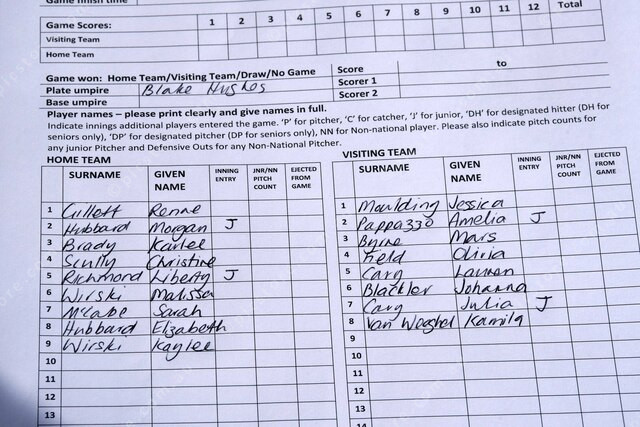 Game finish time
Game Scores: 1 2 3 4 5 6 7 8 9 10 11 12 Total
Visiting Team
Home Team
Game won: Home Team/Visiting Team/Draw/No Game
Score to
Plate umpire Blake Hughes
Scorer 1
Base umpire
Scorer 2
Player names – please print clearly and give names in full.
Indicate innings additional players entered the game. 'P' for pitcher, 'C' for catcher, 'J' for junior, 'DH' for designated hitter (DH for
seniors only), 'DP' for designated pitcher (DP for seniors only), NN for Non-national player. Please also indicate pitch counts for
any junior Pitcher and Defensive Outs for any Non-National Pitcher.
HOME TEAM
SURNAME GIVEN NAME INNING ENTRY JNR/NN PITCH COUNT EJECTED FROM GAME
1 Gillett Renne
2 Hubbard Morgan J
3 Brady Karlee
4 Scully Christine
5 Richmond Liberty J
6 Wirski Malissa
7 McCabe Sarah
8 Hubbard Elizabeth
9 Wirski Kaylee
10
11
12
13
VISITING TEAM
SURNAME GIVEN NAME INNING ENTRY JNR/NN PITCH COUNT EJECTED FROM GAME
1 Moulding Jessica
2 Pappazzo Amelia J
3 Byrne Mars
4 Field Olivia
5 Cary Lauren
6 Blackler Johanna
7 Cary Julia J
8 Van Weeghel Kamila
9
10
11
12
13
14